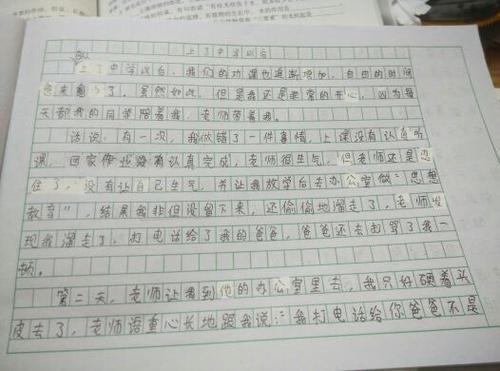 上了中学以后
上了中学以后，我们的功课也逐渐增加，自由的时间
越来越少了。虽然如此，但是我还是非常的开心，因为每
天都我的同学陪着我，老师带着我。
话说，有一次，我做错了一件事情，上课没有认真听
课，回家作业没有认真完成，老师很生气，但老师还是忍
住了，没有让自己生气，并让我放学后去办公室做“思想
教育”，结果我非但没留下来，还偷偷地溜走了，老师发
现我溜走了，打电话给了我的爸爸，爸爸还去打骂了我一
顿。
第二天，老师让我到他的办公室里去，我只好硬着头
皮去了，老师语重心长地跟我说：“我打电话给你爸爸不是